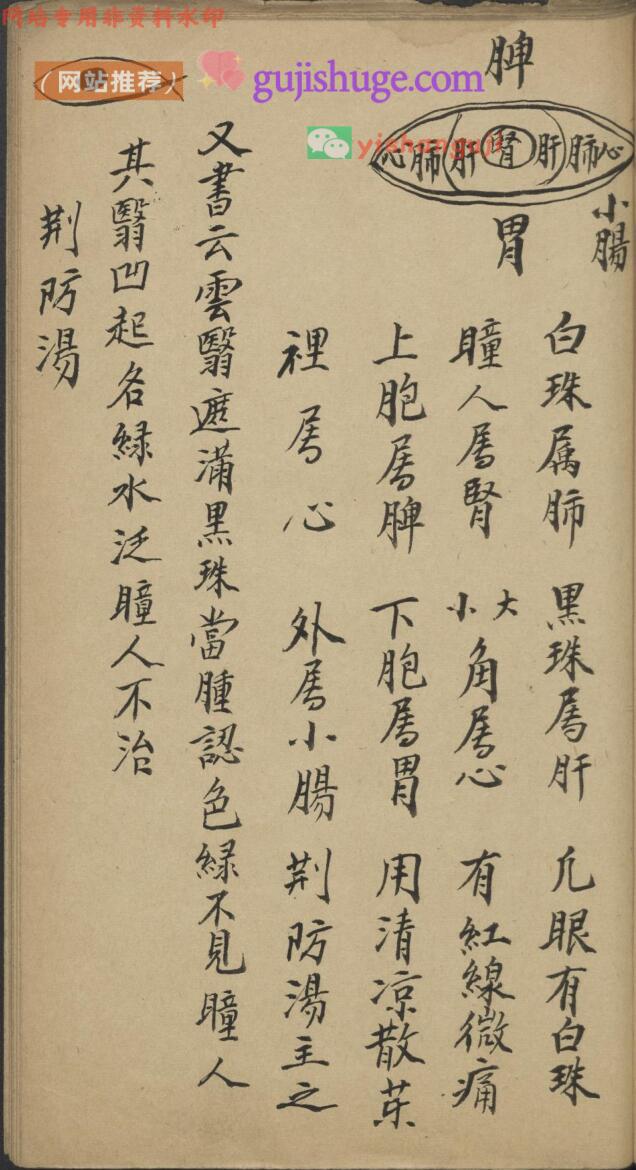 网站专用非资料水印
（网站推荐）
gujishuge.com
yishanguji
脾
心肺肝腎肝肺心
小腸
胃
白珠属肺 黑珠属肝 凡眼有白珠
瞳人属腎 大小角属心 有紅線微痛
上胞属脾 下胞属胃 用清凉散
裡属心 外属小腸 荆防湯主之
又書云雲翳遮滿黑珠當腫認色緑不見瞳人
其翳凹起名緑水泛瞳人不治
荆防湯